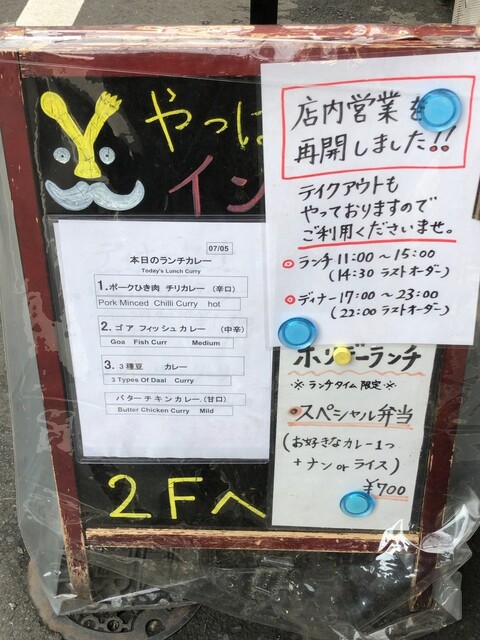 やっぱ
イン
07/05
本日のランチカレー
Today's Lunch Curry
1.ポークひき肉 チリカレー (辛口)
Pork Minced Chilli Curry hot
2.ゴア フィッシュカレー (中辛)
Goa Fish Curr Medium
3.3種豆 カレー
3 Types Of Daal Curry
バターチキンカレー.(甘口)
Butter Chicken Curry Mild
2Fへ
店内営業を
再開しました!!
テイクアウトも
やっておりますので
ご利用くださいませ。
ランチ 11:00~15:00
(14:30 ラストオーダー)
ディナー 17:00~23:00
(22:00 ラストオーダー)
ホリデーランチ
※ランチタイム限定※
スペシャル弁当
(お好きなカレー1つ
+ナン or ライス)
¥700